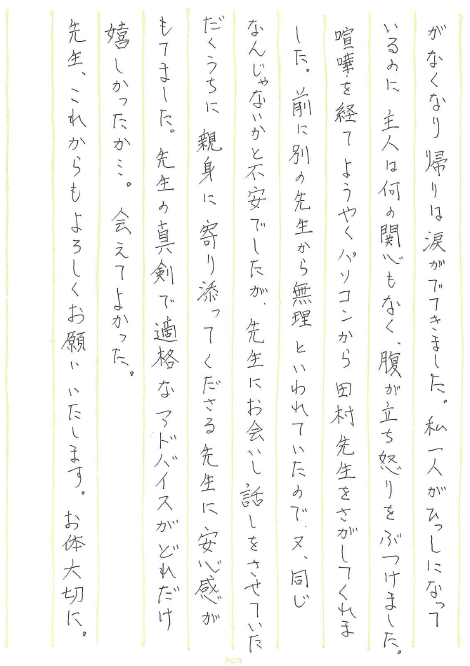 がなくなり帰りは涙がでてきました。私一人がひっしになって
いるのに主人は何の関心もなく、腹が立ち怒りをぶつけました。
喧嘩を経てようやくパソコンから田村先生をさがしてくれま
した。前に別の先生から無理といわれていたので又、同じ
なんじゃないかと不安でしたが、先生にお会いし話しをさせていた
だくうちに親身に寄り添ってくださる先生に安心感が
もてました。先生の真剣で適格なアドバイスがどれだけ
嬉しかったか…。会えてよかった。
先生、これからもよろしくお願いいたします。お体大切に。
アピカ